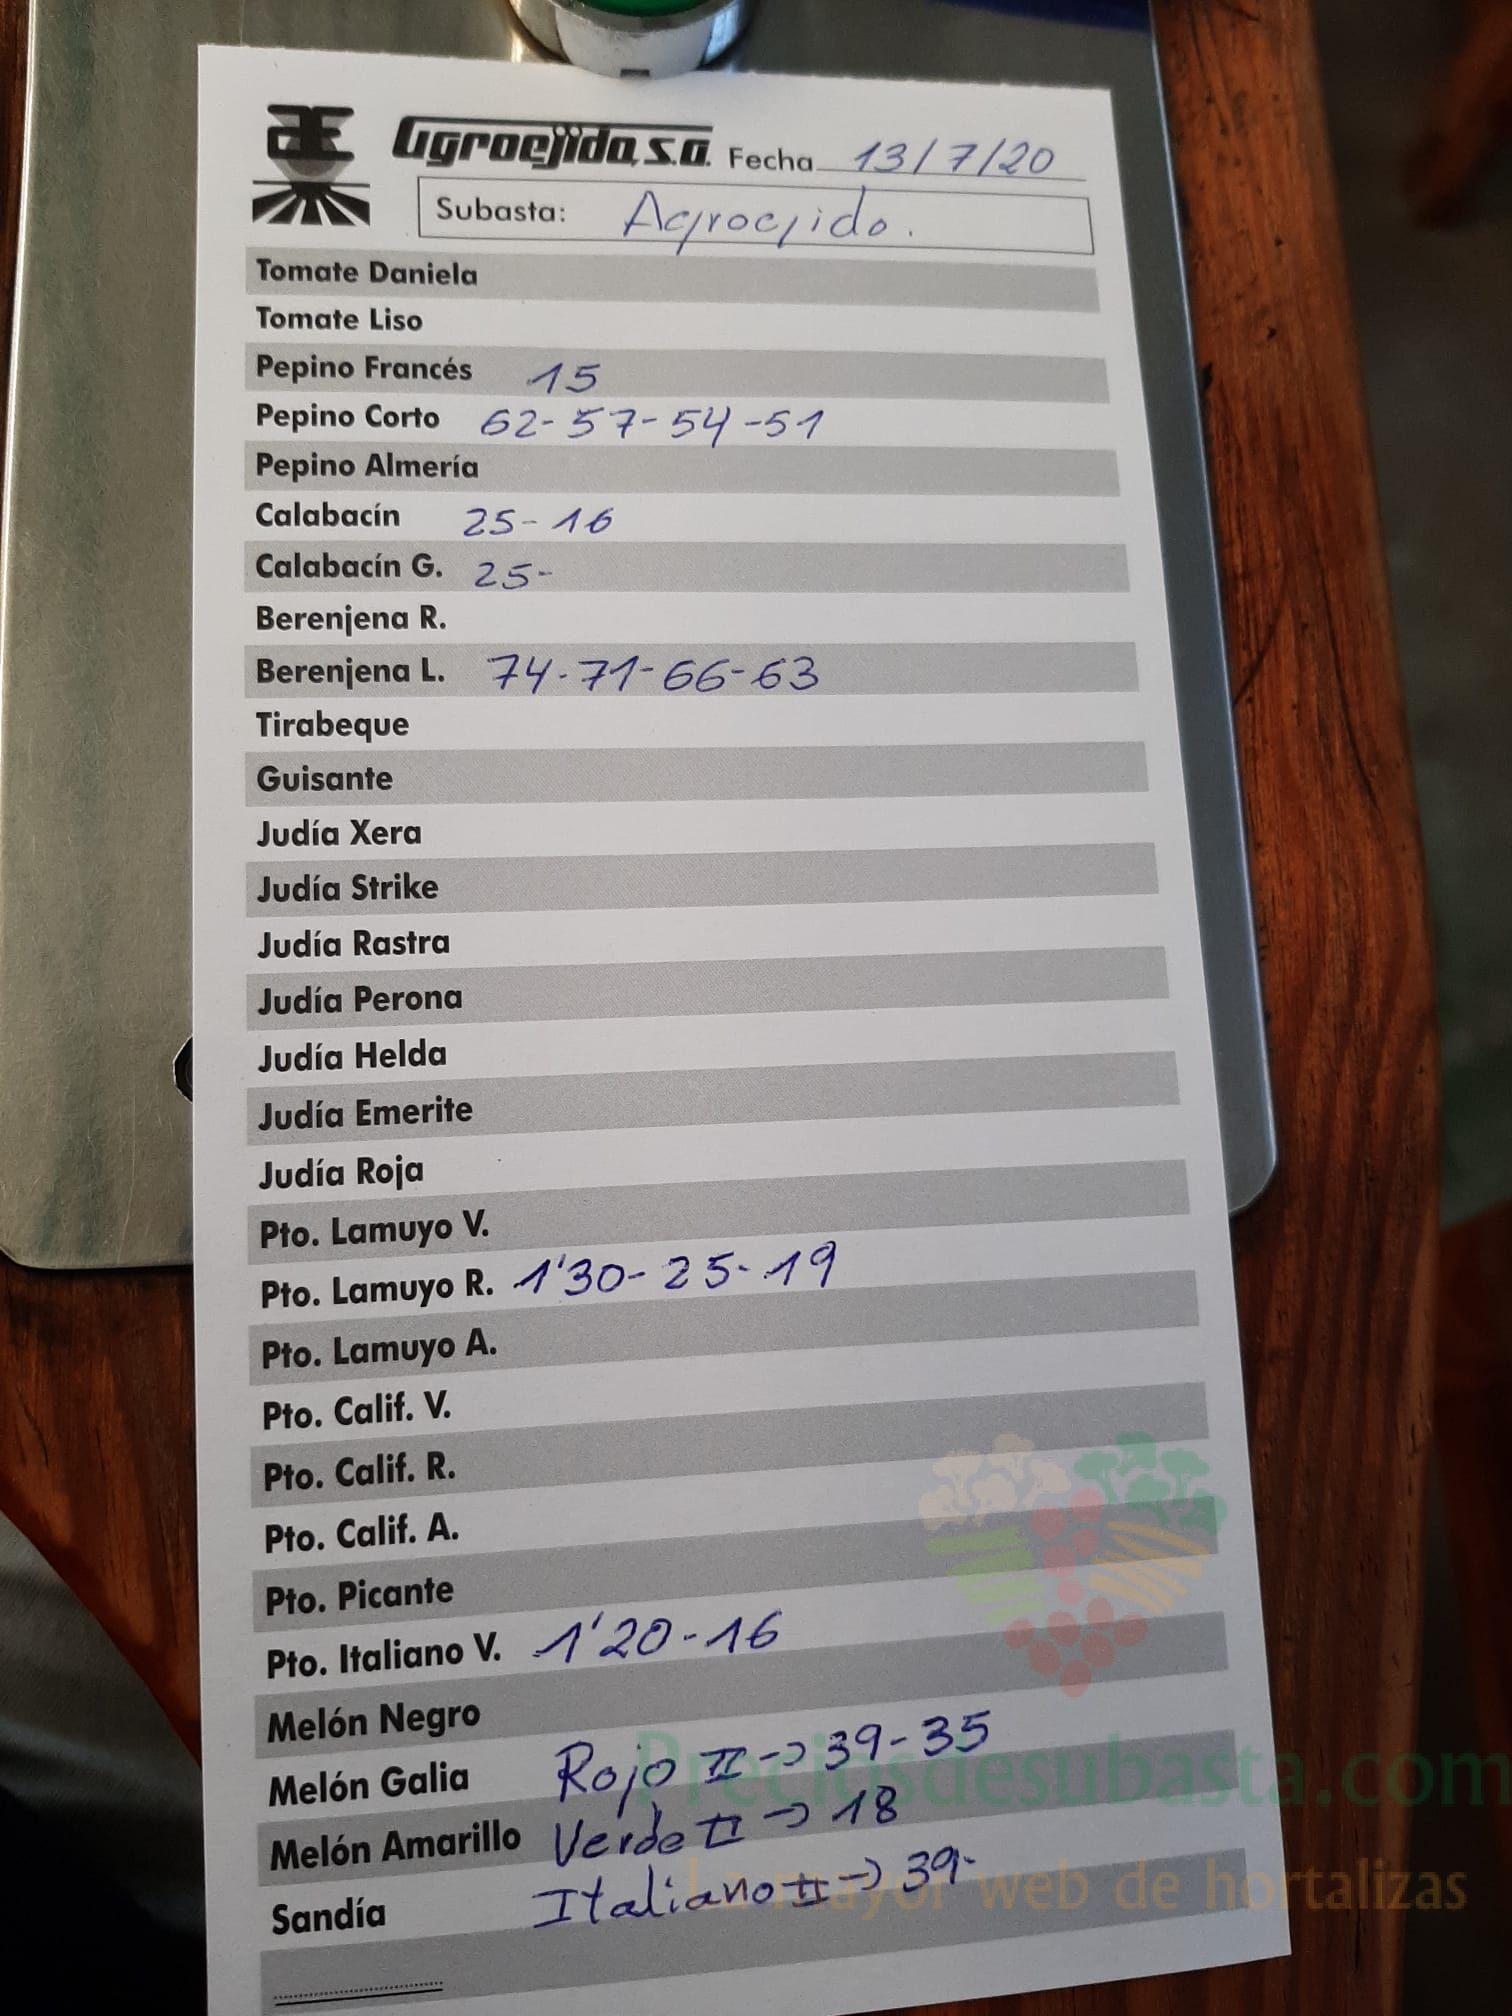 Agroejido, S.A. Fecha 13/7/20
Subasta: Agroejido.
Tomate Daniela
Tomate Liso
Pepino Francés 15
Pepino Corto 62-57-54-51
Pepino Almería
Calabacín 25-16
Calabacín G. 25-
Berenjena R.
Berenjena L. 74-71-66-63
Tirabeque
Guisante
Judía Xera
Judía Strike
Judía Rastra
Judía Perona
Judía Helda
Judía Emerite
Judía Roja
Pto. Lamuyo V.
Pto. Lamuyo R. 1'30-25-19
Pto. Lamuyo A.
Pto. Calif. V.
Pto. Calif. R.
Pto. Calif. A.
Pto. Picante
Pto. Italiano V. 1'20-16
Melón Negro
Melón Galia Rojo II -> 39-35
Melón Amarillo Verde II -> 18
Sandía Italiano II -> 39-
Preciosdesubasta.com
La mayor web de hortalizas